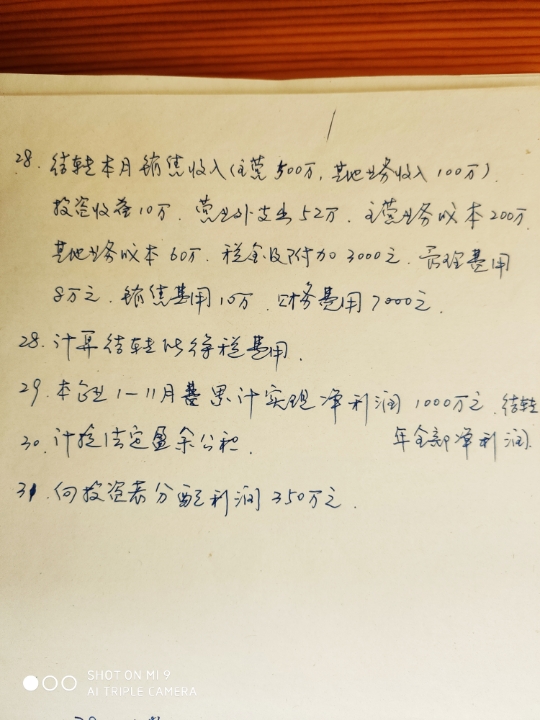 28. 结转本月销售收入(主营500万, 其他业务收入100万)
投资收益10万. 营业外支出52万. 主营业务成本200万.
其他业务成本60万. 税金及附加3000元. 管理费用
8万元. 销售费用10万. 财务费用7000元.
28. 计算结转所得税费用.
29. 本企业1-11月累计实现净利润1000万元. 结转
年全部净利润.
30. 计提法定盈余公积.
31. 向投资者分配利润350万元.
SHOT ON MI 9
AI TRIPLE CAMERA